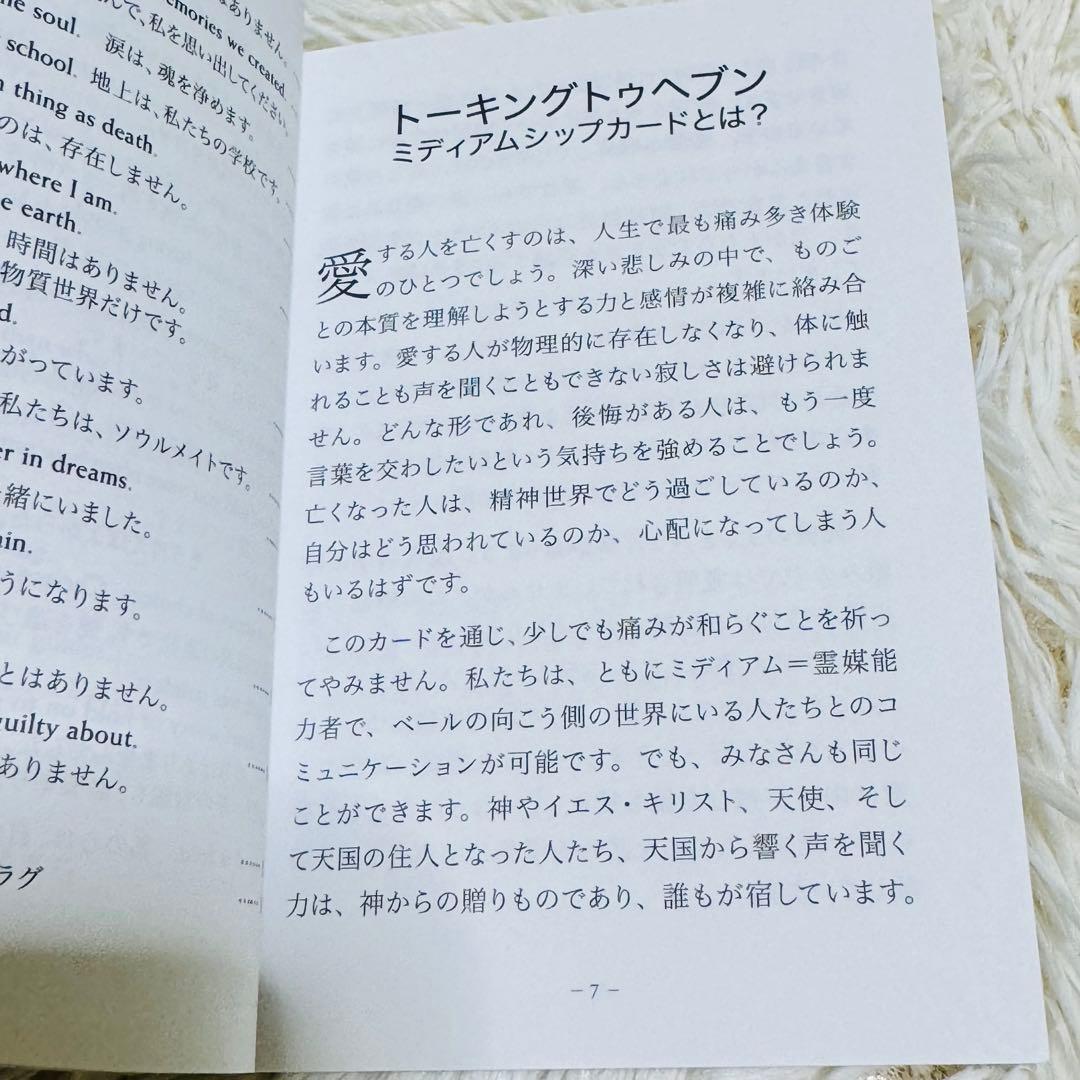 はありません。
emories we created.
んで、私を思い出してください。
he soul.　涙は、魂を浄めます。
school. 地上は、私たちの学校です。
n thing as death.
のは、存在しません。
where I am.
e earth.
時間はありません。
物質世界だけです。
d.
がっています。
私たちは、ソウルメイトです。
er in dreams.
緒にいました。
ain.
うになります。
とはありません。
guilty about.
ありません。
ラグ
トーキングトゥヘブン
ミディアムシップカードとは？
愛する人を亡くすのは、人生で最も痛み多き体験
のひとつでしょう。深い悲しみの中で、ものご
との本質を理解しようとする力と感情が複雑に絡み合
います。愛する人が物理的に存在しなくなり、体に触
れることも声を聞くこともできない寂しさは避けられま
せん。どんな形であれ、後悔がある人は、もう一度
言葉を交わしたいという気持ちを強めることでしょう。
亡くなった人は、精神世界でどう過ごしているのか、
自分はどう思われているのか、心配になってしまう人
もいるはずです。
このカードを通じ、少しでも痛みが和らぐことを祈っ
てやみません。私たちは、ともにミディアム＝霊媒能
力者で、ベールの向こう側の世界にいる人たちとのコ
ミュニケーションが可能です。でも、みなさんも同じ
ことができます。神やイエス・キリスト、天使、そし
て天国の住人となった人たち、天国から響く声を聞く
力は、神からの贈りものであり、誰もが宿しています。
– 7 –